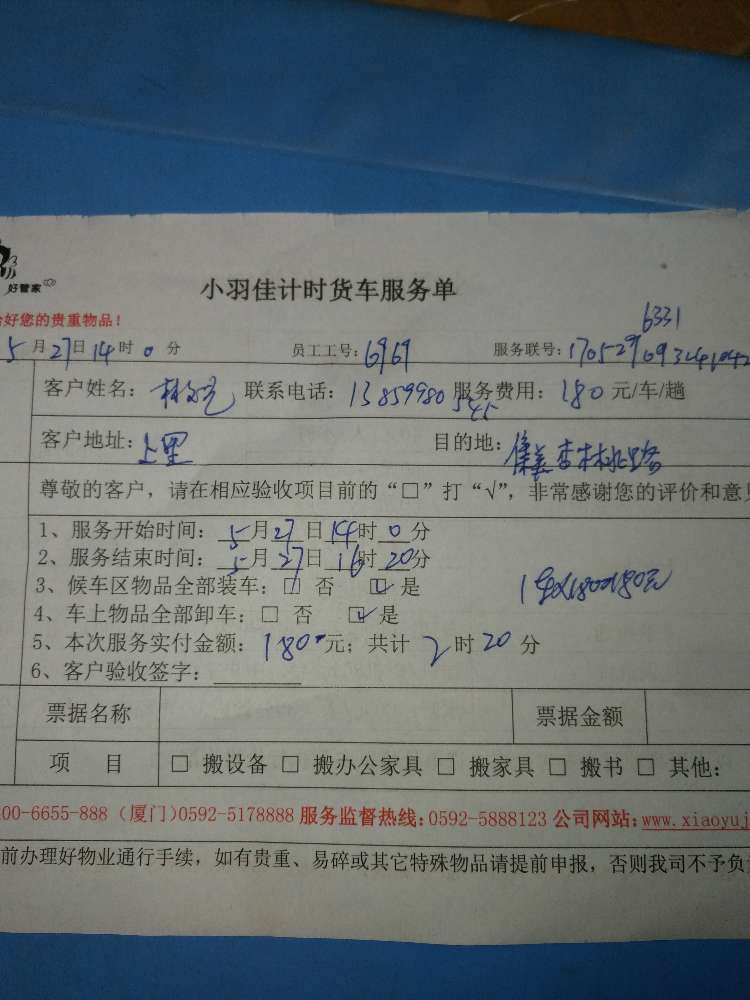 好管家
小羽佳计时货车服务单
好您的贵重物品！
6331
5月27日14时0分 员工工号：6969 服务联号：
客户姓名： 联系电话：13859980545 服务费用：180元/车/趟
客户地址：上里 目的地：集美杏林
尊敬的客户，请在相应验收项目前的“□”打“√”，非常感谢您的评价和意见
1、服务开始时间：5月27日14时0分
2、服务结束时间：5月27日16时20分
3、候车区物品全部装车：□ 否 ☑ 是
4、车上物品全部卸车：□ 否 ☑ 是
1车x180=180元
5、本次服务实付金额：180元；共计2时20分
6、客户验收签字：
票据名称 票据金额
项 目 □ 搬设备 □ 搬办公家具 □ 搬家具 □ 搬书 □ 其他：
00-6655-888（厦门）0592-5178888 服务监督热线：0592-5888123 公司网站：www.xiaoyuj
前办理好物业通行手续，如有贵重、易碎或其它特殊物品请提前申报，否则我司不予负